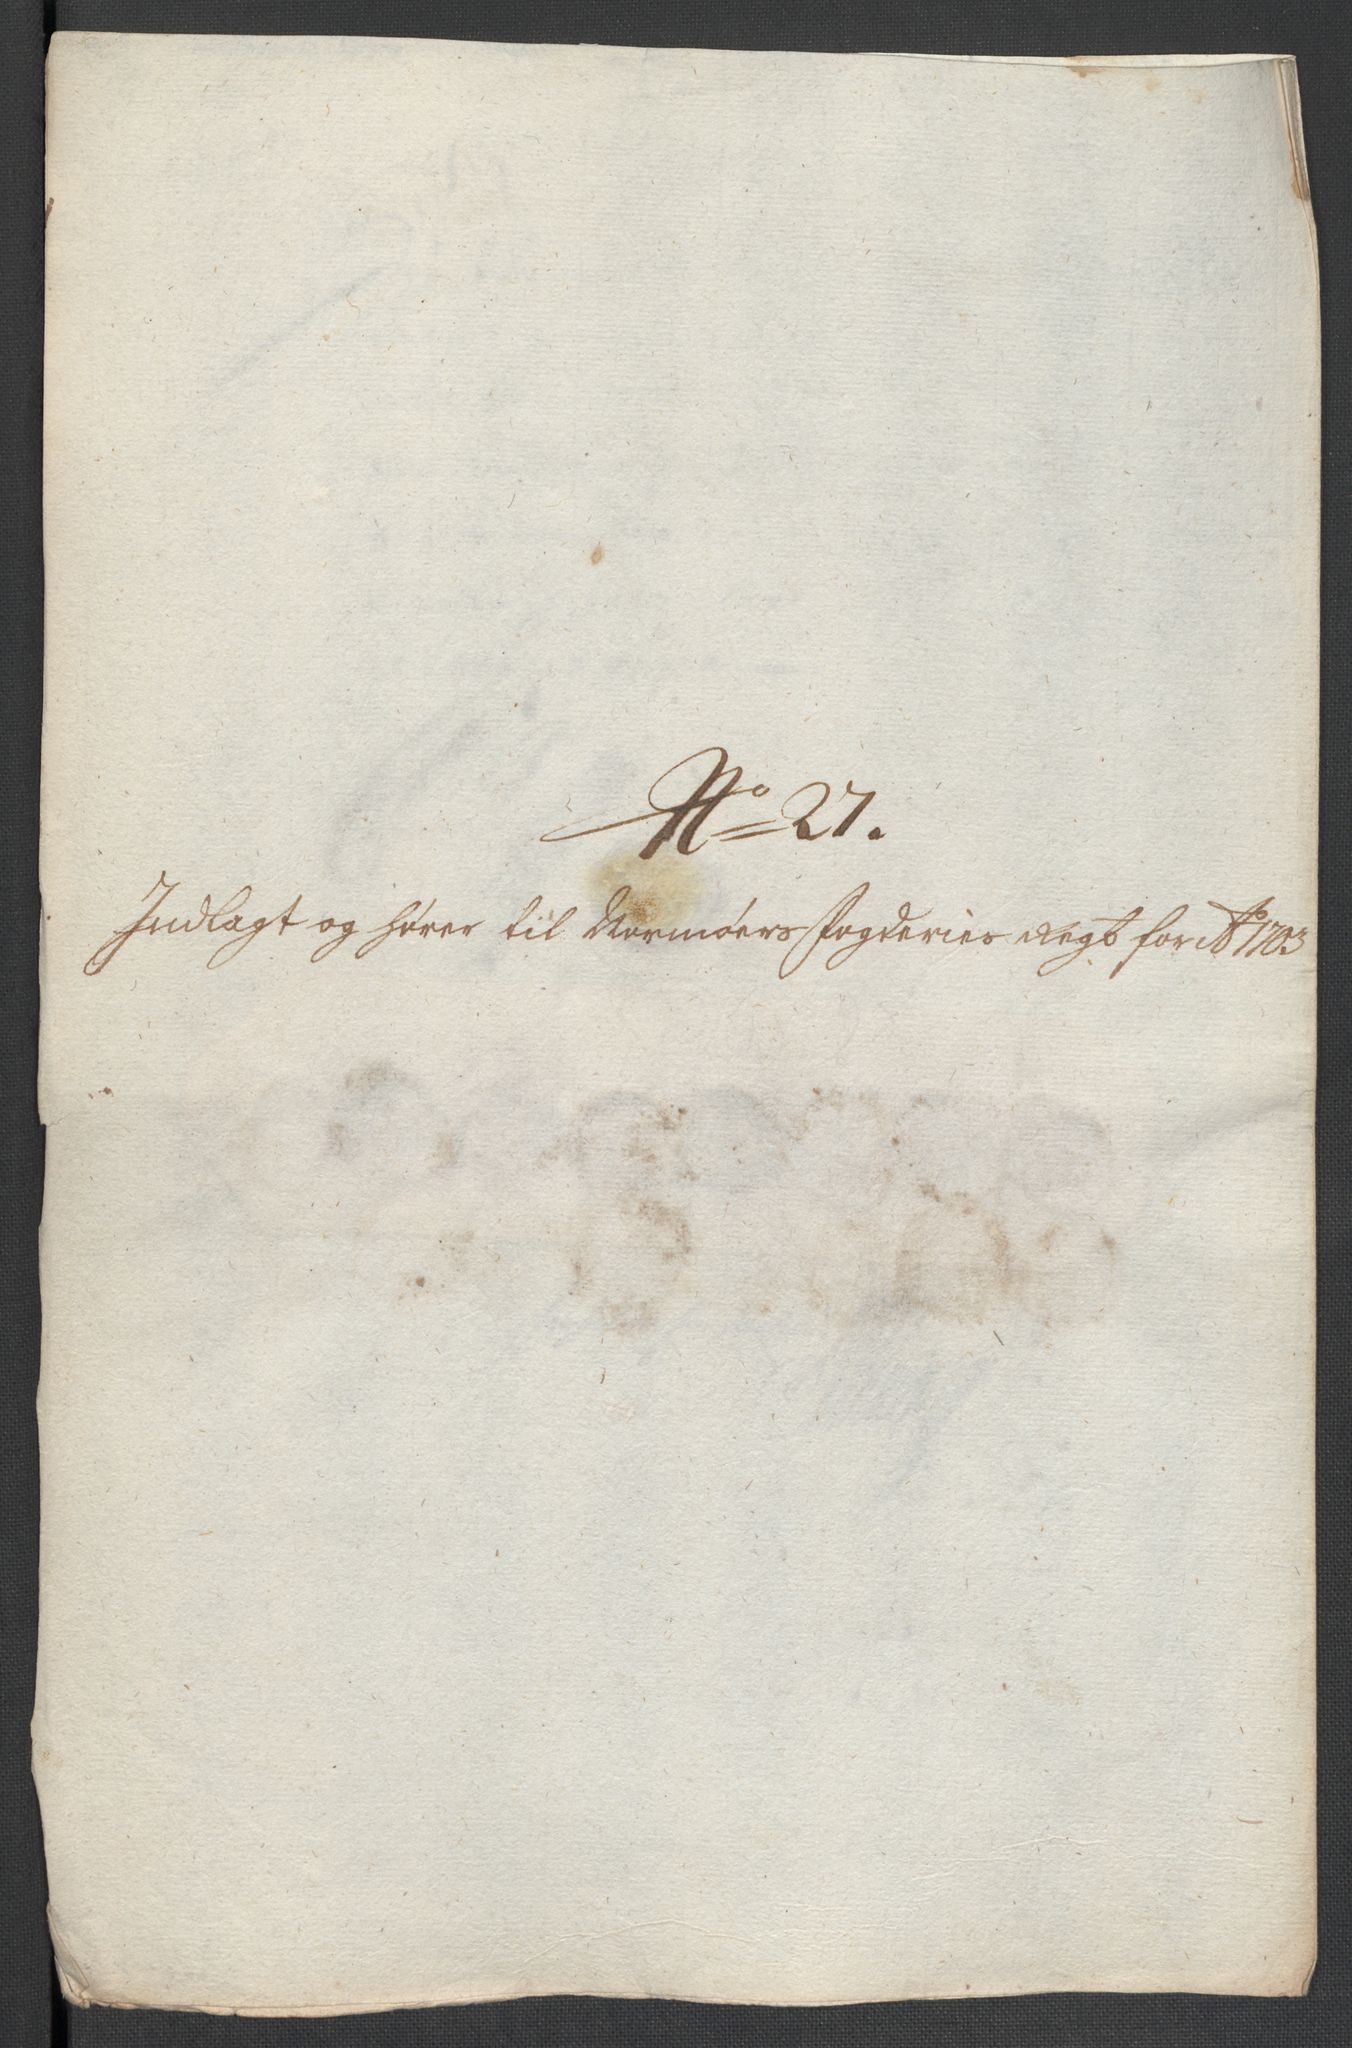 No 27.
Indlagt og hører til Normøers Fogderies Regb for Ao 1703